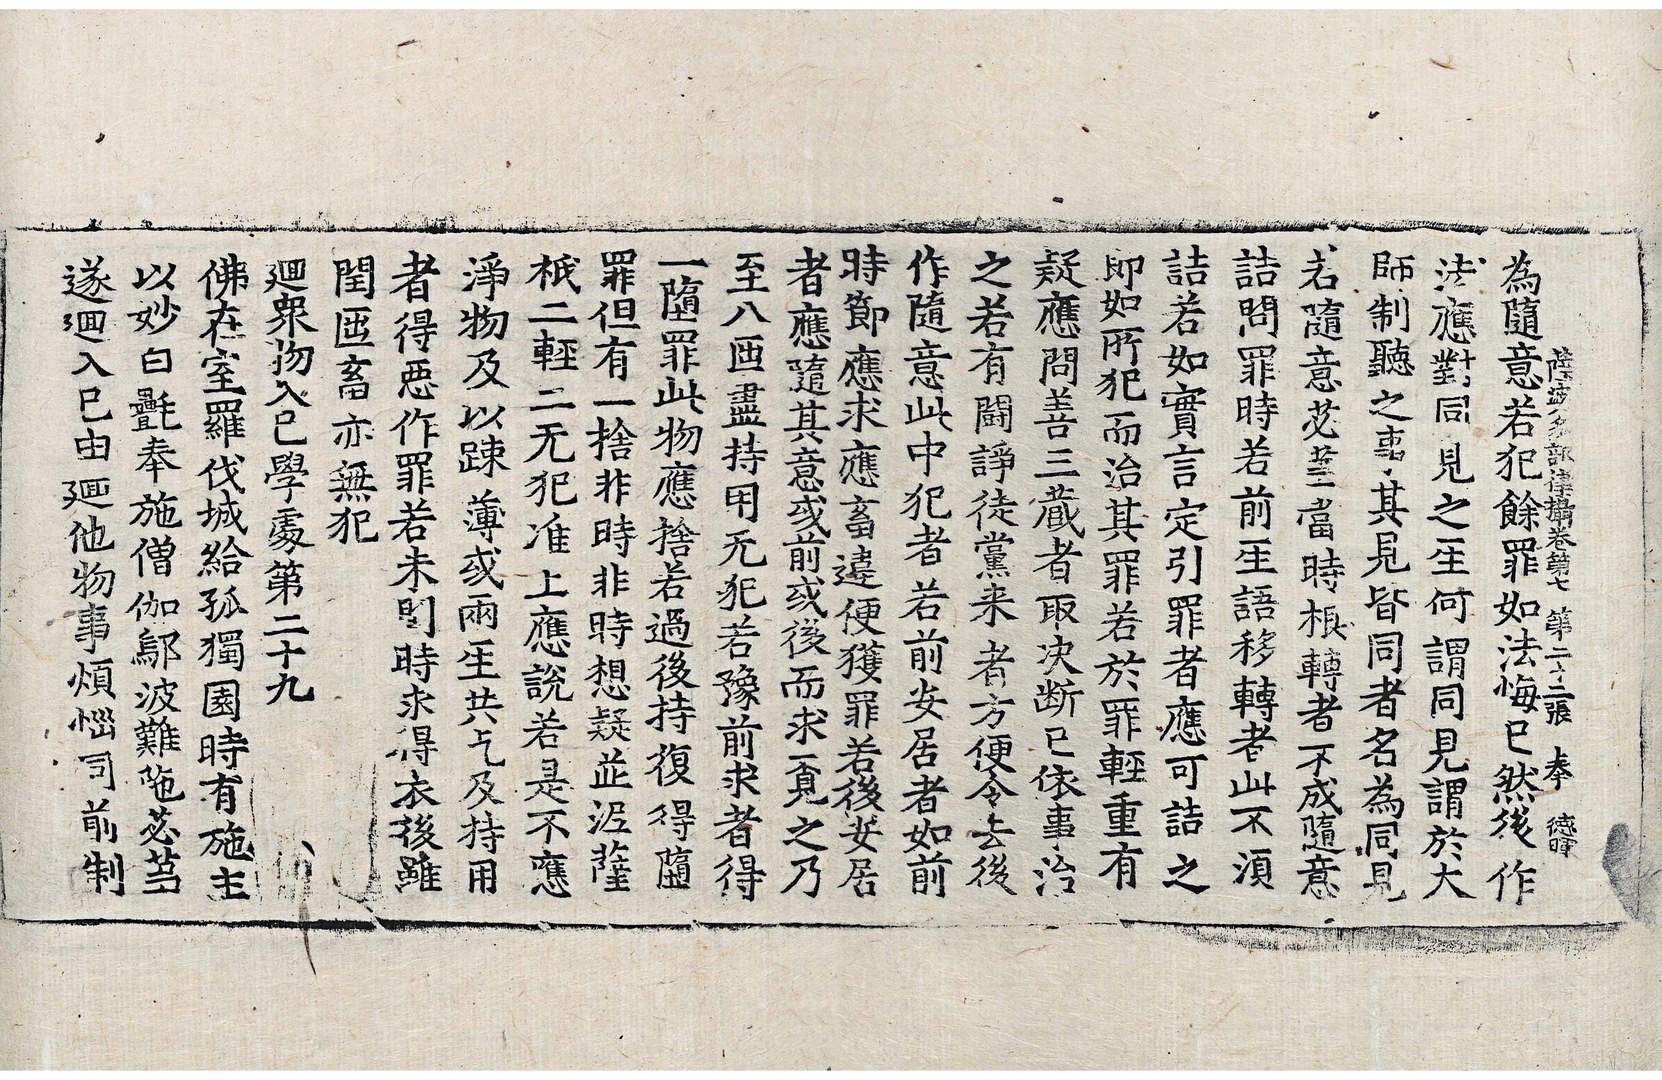 薩婆多部律攝卷第七　第二十二張　奉　德暉
為隨意若犯餘罪如法悔已然後作
法應對同見之𤯔何謂同見謂於大
師制聽之事其見皆同者名為同見
若隨意苾蒭當時根轉者不成隨意
詰問罪時若前𤯔語移轉者此不湏
詰若如實言定引罪者應可詰之
即如所犯而治其罪若於罪輕重有
疑應問善三藏者取决断已依事治
之若有鬪諍徒黨来者方便令去後
作隨意此中犯者若前安居者如前
時節應求應畜違便獲罪若後安居
者應隨其意或前或後而求覓之乃
至八㐁盡持用无犯若豫前求者得
一墮罪此物應捨若過後持復得隨
罪但有一捨非時非時想疑並泥薩
祇二輕二无犯准上應說若是不應
淨物及以踈薄或兩𤯔共乞及持用
者得惡作罪若未閏時求得衣後雖
閏㐁畜亦無犯
迴衆物入已學處第二十九
佛在室羅伐城給孤獨園時有施主
以妙白㲲奉施僧伽鄔波難陁苾蒭
遂迴入已由迴他物事煩惱同前制